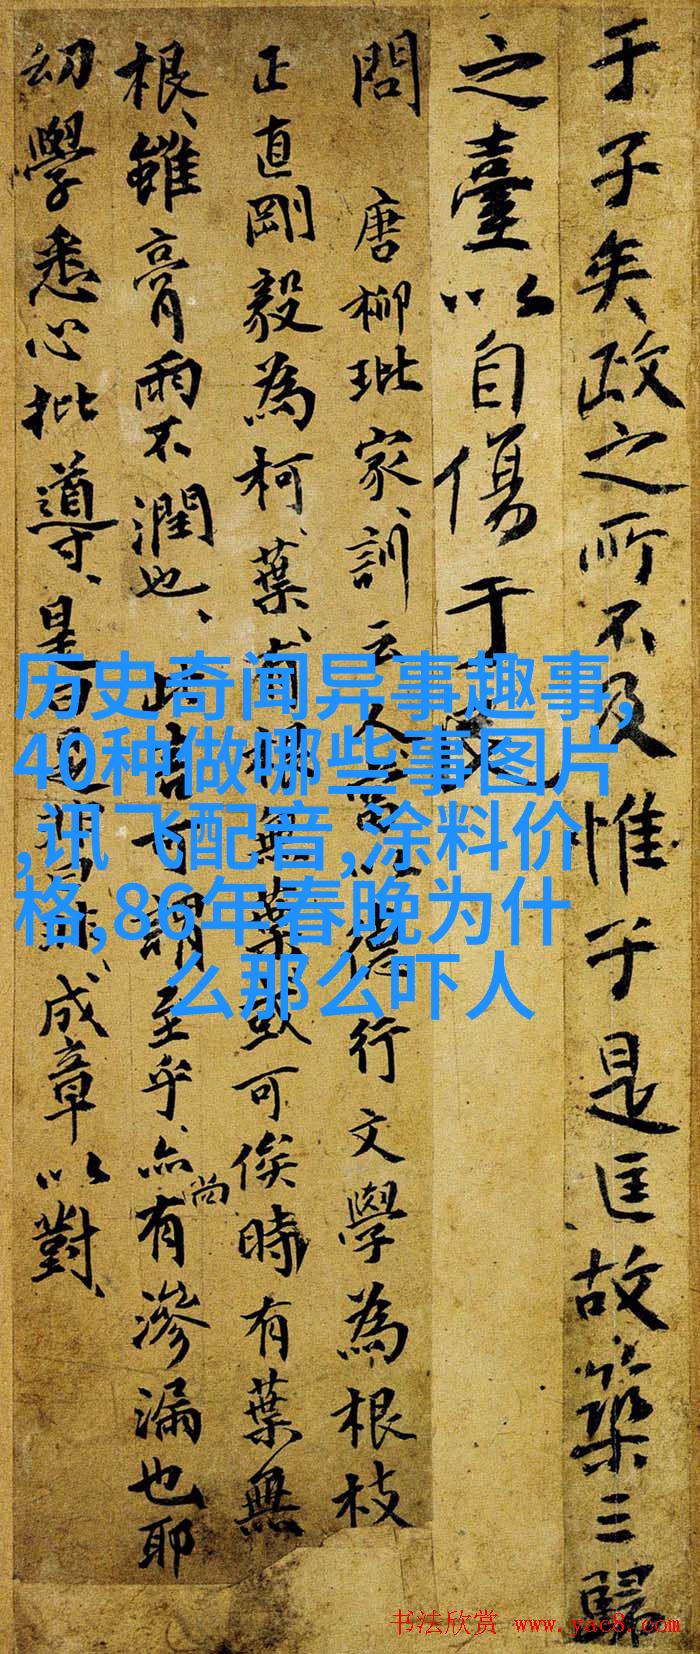 于子矣政之所不及惟于是匡故築三歸
之臺以自傷于
問 唐柳玭家訓云人德行文學為根枝
正直剛毅為柯葉有根無葉或可俟時有葉無
根雖膏雨不潤也此言可謂至乎亦尚有滲漏也耶
幼學悉心批導是成章以對
历史奇闻异事趣事,
40种做哪些事图片
,讯飞配音,涂料价
格,86年春晚为什
么那么吓人
书法欣赏 www.yac8.com